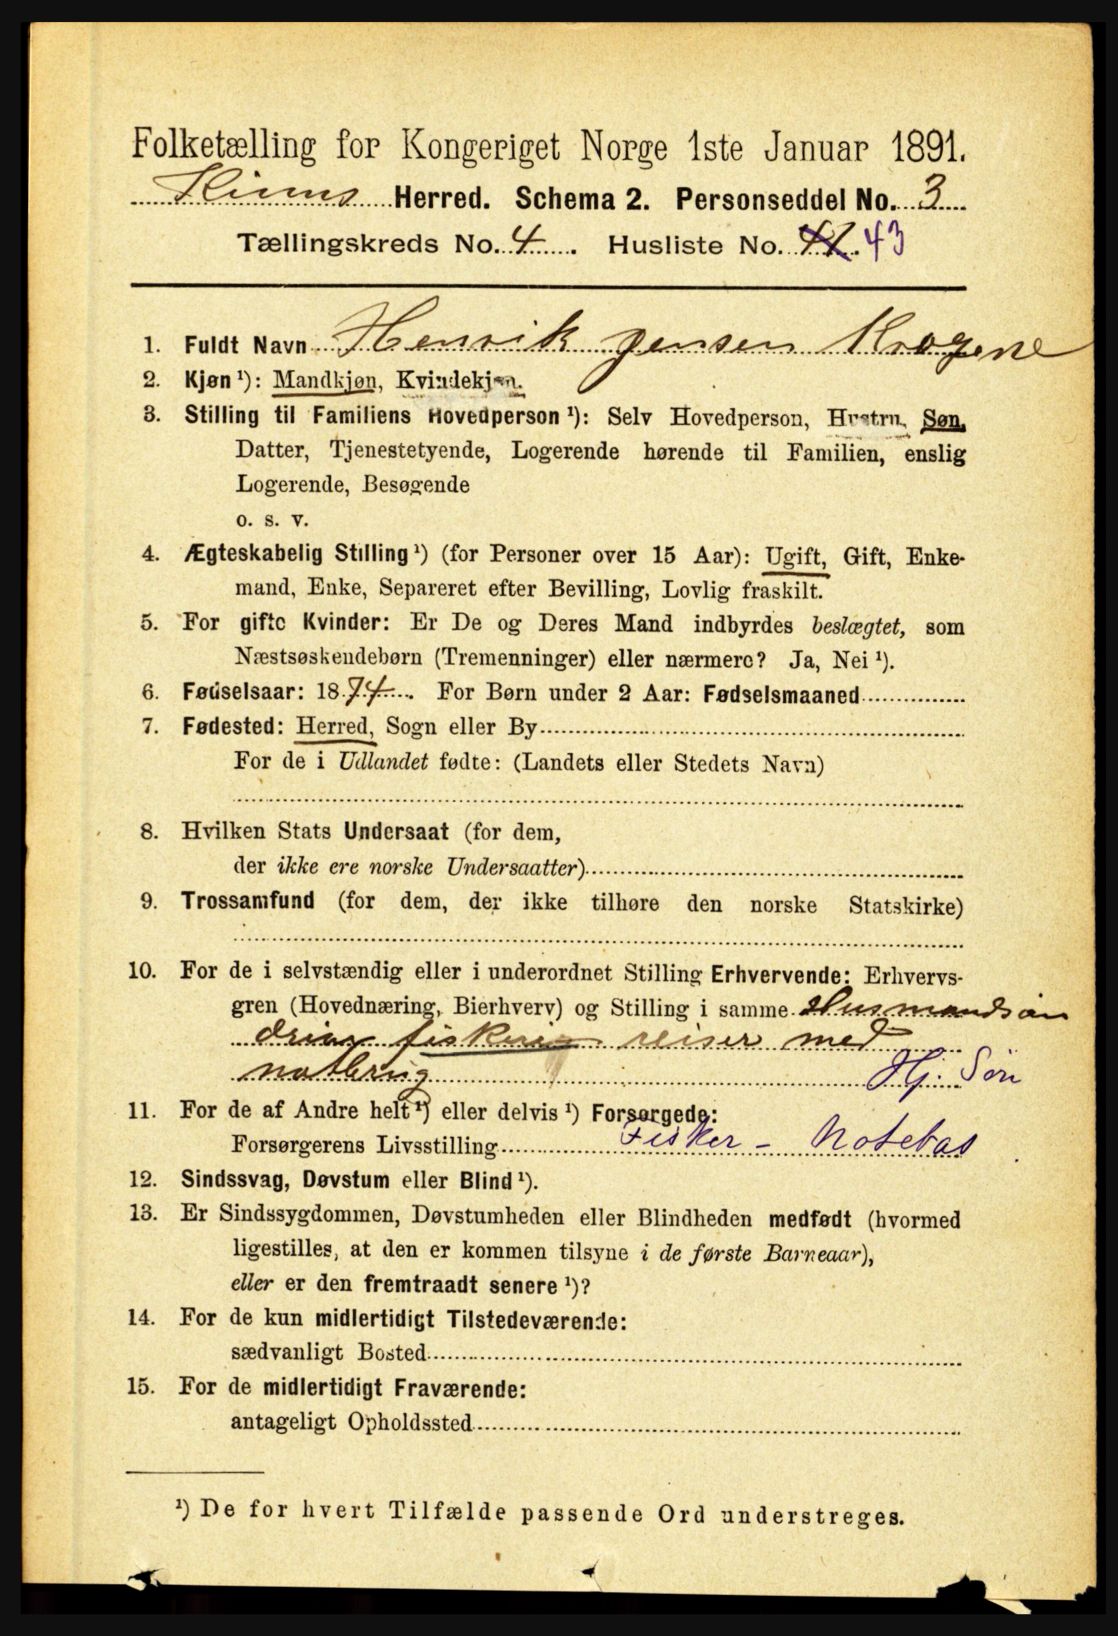 Folketælling for Kongeriget Norge 1ste Januar 1891.
Kinns Herred. Schema 2. Personseddel No. 3
Tællingskreds No. 4. Husliste No. 41. 43
1. Fuldt Navn Henrik Jensen Krogene
2. Kjøn ¹): Mandkjøn, Kvindekjøn.
3. Stilling til Familiens Hovedperson ¹): Selv Hovedperson, Hustru, Søn,
Datter, Tjenestetyende, Logerende hørende til Familien, enslig
Logerende, Besøgende
o. s. v.
4. Ægteskabelig Stilling ¹) (for Personer over 15 Aar): Ugift, Gift, Enke-
mand, Enke, Separeret efter Bevilling, Lovlig fraskilt.
5. For gifte Kvinder: Er De og Deres Mand indbyrdes beslægtet, som
Næstsøskendebørn (Tremenninger) eller nærmere? Ja, Nei ¹).
6. Fødselsaar: 1874. For Børn under 2 Aar: Fødselsmaaned
7. Fødested: Herred, Sogn eller By
For de i Udlandet fødte: (Landets eller Stedets Navn)
8. Hvilken Stats Undersaat (for dem,
der ikke ere norske Undersaatter)
9. Trossamfund (for dem, der ikke tilhøre den norske Statskirke)
10. For de i selvstændig eller i underordnet Stilling Erhvervende: Erhvervs-
gren (Hovednæring, Bierhverv) og Stilling i samme Husmandsøn
fiskeri reiser med
notbrug Hj. Søn
11. For de af Andre helt ¹) eller delvis ¹) Forsørgede:
Forsørgerens Livsstilling Fisker - Notebas
12. Sindssvag, Døvstum eller Blind ¹).
13. Er Sindssygdommen, Døvstumheden eller Blindheden medfødt (hvormed
ligestilles, at den er kommen tilsyne i de første Barneaar),
eller er den fremtraadt senere ¹)?
14. For de kun midlertidigt Tilstedeværende:
sædvanligt Bosted
15. For de midlertidigt Fraværende:
antageligt Opholdssted
¹) De for hvert Tilfælde passende Ord understreges.